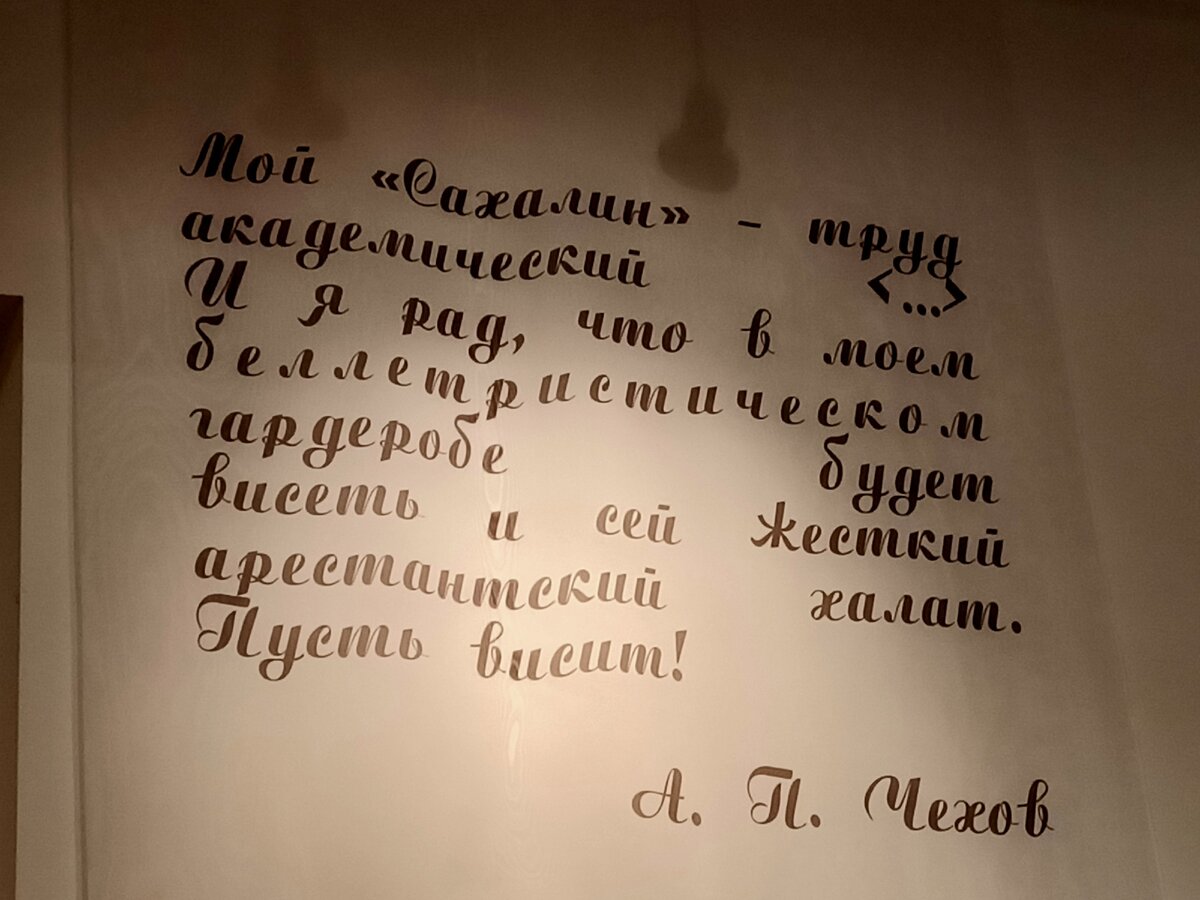 Мой «Сахалин» - труд
академический <...>
И я рад, что в моем
беллетристическом
гардеробе будет
висеть и сей жесткий
арестантский халат.
Пусть висит!
А. П. Чехов